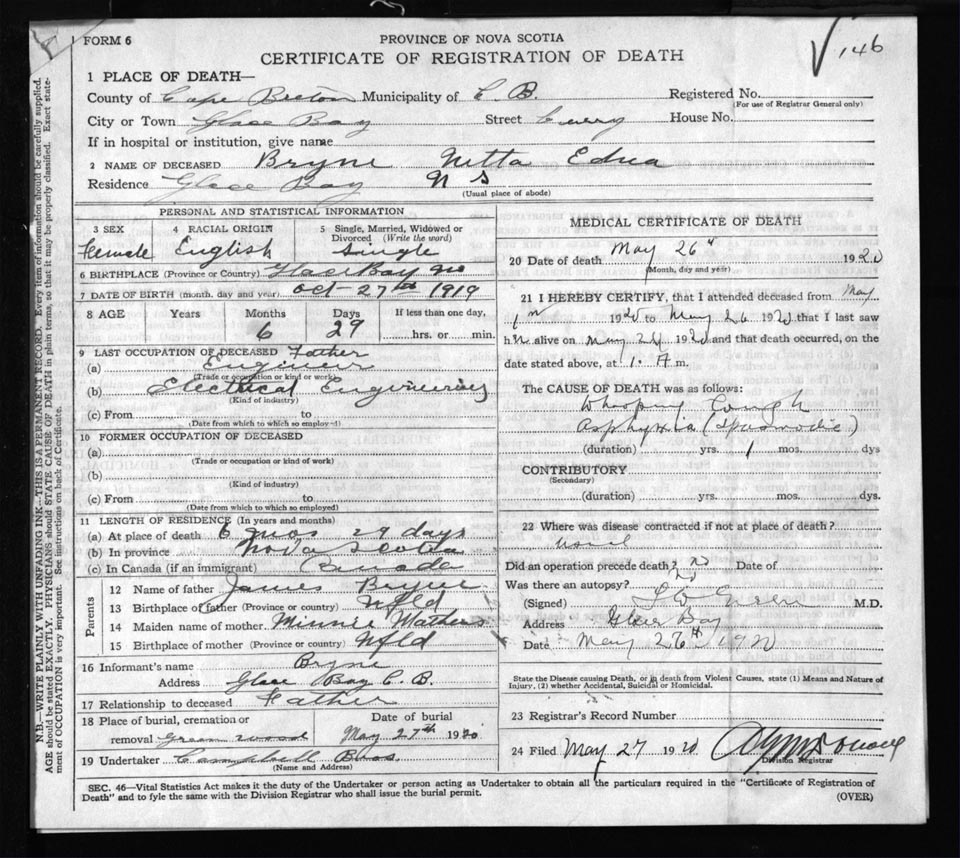 FORM 6
PROVINCE OF NOVA SCOTIA
CERTIFICATE OF REGISTRATION OF DEATH
146
1 PLACE OF DEATH—
County of Cape Breton Municipality of C. B. Registered No.
(For use of Registrar General only)
City or Town Glace Bay Street House No.
If in hospital or institution, give name
2 NAME OF DECEASED Bryne Netta Edna
Residence Glace Bay N S
(Usual place of abode)
PERSONAL AND STATISTICAL INFORMATION
3 SEX 4 RACIAL ORIGIN 5 Single, Married, Widowed or Divorced (Write the word)
Female English Single
6 BIRTHPLACE (Province or Country) Glace Bay NS
7 DATE OF BIRTH (month, day and year) Oct 27th 1919
8 AGE Years Months Days If less than one day,
6 29 hrs. or min.
9 LAST OCCUPATION OF DECEASED Father
(a) Engineer
(Trade or occupation or kind of work)
(b) Electrical Engineering
(Kind of industry)
(c) From to
(Date from which to which so employed)
10 FORMER OCCUPATION OF DECEASED
(a)
(Trade or occupation or kind of work)
(b)
(Kind of industry)
(c) From to
(Date from which to which so employed)
11 LENGTH OF RESIDENCE (In years and months)
(a) At place of death 6 mos 29 days
(b) In province Nova Scotia
(c) In Canada (if an immigrant) Canada
Parents
12 Name of father James Bryne
13 Birthplace of father (Province or country) Nfld
14 Maiden name of mother Minnie Mathers
15 Birthplace of mother (Province or country) Nfld
16 Informant's name Bryne
Address Glace Bay C. B.
17 Relationship to deceased Father
18 Place of burial, cremation or removal Greenwood Date of burial May 27th 1920
19 Undertaker Campbell Bros
(Name and Address)
MEDICAL CERTIFICATE OF DEATH
20 Date of death May 26th 1920
(Month, day and year)
21 I HEREBY CERTIFY, that I attended deceased from May
1920 to May 26 1920 that I last saw
alive on May 1920 and that death occurred, on the
date stated above, at 1. A m.
The CAUSE OF DEATH was as follows:
Whooping Cough
Asphyxia (Spasmodic)
(duration) yrs. 1 mos. dys
CONTRIBUTORY
(Secondary)
(duration) yrs. mos. dys.
22 Where was disease contracted if not at place of death?
Did an operation precede death? no Date of
Was there an autopsy? no
(Signed) M.D.
Address Glace Bay
Date May 26th 1920
State the Disease causing Death, or in death from Violent Causes, state (1) Means and Nature of Injury, (2) whether Accidental, Suicidal or Homicidal.
23 Registrar's Record Number
24 Filed May 27 1920
Division Registrar
SEC. 46—Vital Statistics Act makes it the duty of the Undertaker or person acting as Undertaker to obtain all the particulars required in the "Certificate of Registration of
Death" and to fyle the same with the Division Registrar who shall issue the burial permit. (OVER)
N.B.—WRITE PLAINLY WITH UNFADING INK—THIS IS A PERMANENT RECORD. Every item of information should be carefully supplied.
AGE should be stated EXACTLY. PHYSICIANS should STATE CAUSE OF DEATH in plain terms, so that it may be properly classified. Exact state-
ment of OCCUPATION is very important. See instructions on back of Certificate.